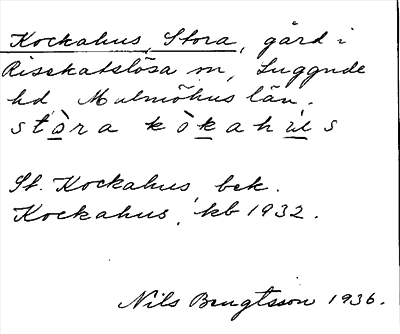 Kockahus, Stora, gård i
Risekatslösa sn, Luggude
hd Malmöhus län.
stòra kòkahùs
St. Kockahus, bek.
Kockahus, kb 1932.
Nils Bengtsson 1936.